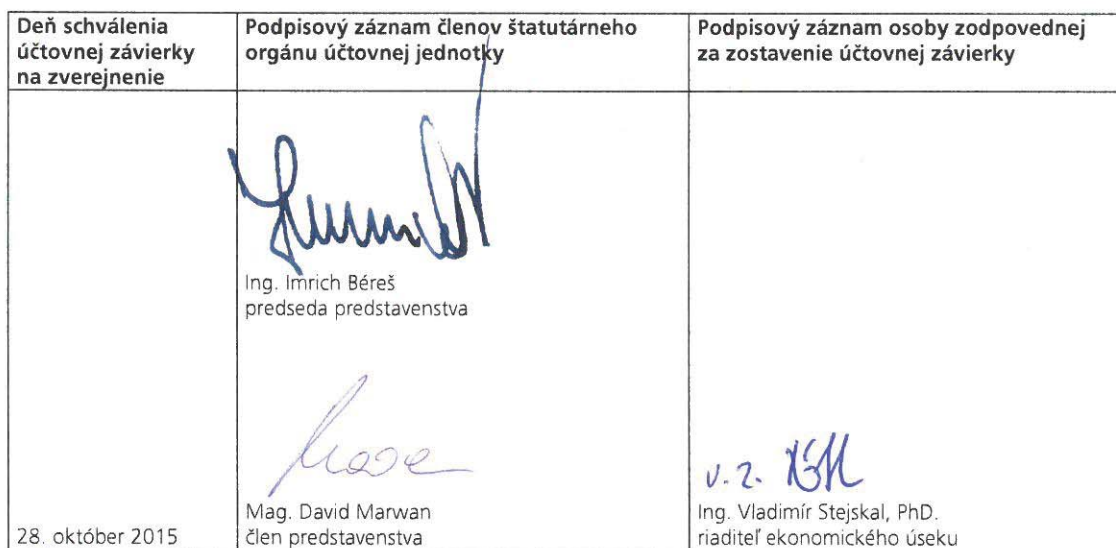 Deň schválenia
účtovnej závierky
na zverejnenie
Podpisový záznam členov štatutárneho
orgánu účtovnej jednotky
Podpisový záznam osoby zodpovednej
za zostavenie účtovnej závierky
Ing. Imrich Béreš
predseda predstavenstva
v. z.
28. október 2015
Mag. David Marwan
člen predstavenstva
Ing. Vladimír Stejskal, PhD.
riaditeľ ekonomického úseku